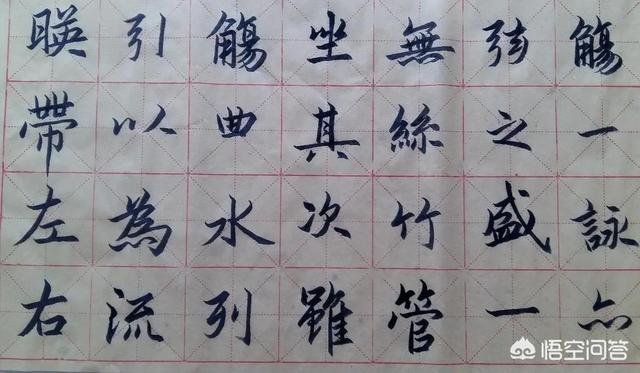 暎帶左右
引以為流
觴曲水列
坐其次雖
無絲竹管
弦之盛一
觴一詠亦
悟空问答